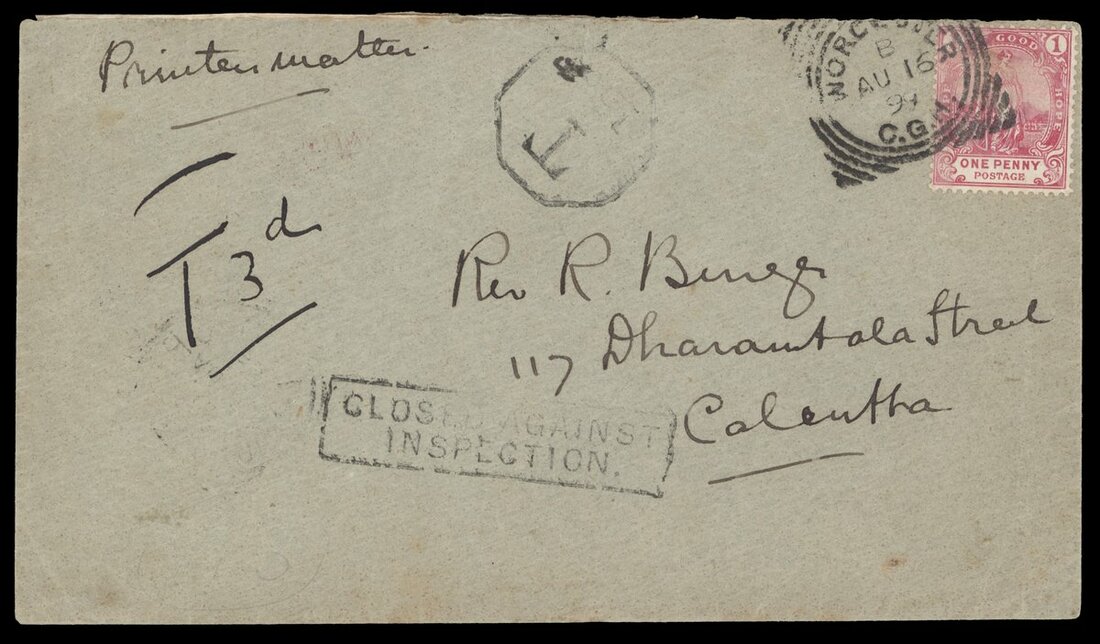 Printed matter.
T
WORCESTER
B
AU 16
99
C.G.H.
GOOD
HOPE
1
ONE PENNY
POSTAGE
T 3d
Rev R.
117 Dharamtala Street
Calcutta
CLOSED AGAINST
INSPECTION.